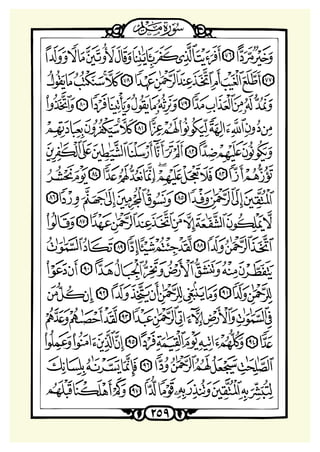 سورة مريم
وَخَيْرٌ مَّرَدًّا ٧٦ أَفَرَءَيْتَ ٱلَّذِى كَفَرَ بِـَٔايَـٰتِنَا وَقَالَ لَأُوتَيَنَّ مَالًا وَوَلَدًا
٧٧ أَطَّلَعَ ٱلْغَيْبَ أَمِ ٱتَّخَذَ عِندَ ٱلرَّحْمَـٰنِ عَهْدًا ٧٨ كَلَّا سَنَكْتُبُ مَا يَقُولُ
وَنَمُدُّ لَهُۥ مِنَ ٱلْعَذَابِ مَدًّا ٧٩ وَنَرِثُهُۥ مَا يَقُولُ وَيَأْتِينَا فَرْدًا ٨٠ وَٱتَّخَذُوا۟
مِن دُونِ ٱللَّهِ ءَالِهَةً لِّيَكُونُوا۟ لَهُمْ عِزًّا ٨١ كَلَّا سَيَكْفُرُونَ بِعِبَادَتِهِمْ
وَيَكُونُونَ عَلَيْهِمْ ضِدًّا ٨٢ أَلَمْ تَرَ أَنَّآ أَرْسَلْنَا ٱلشَّيَـٰطِينَ عَلَى ٱلْكَـٰفِرِينَ
تَؤُزُّهُمْ أَزًّا ٨٣ فَلَا تَعْجَلْ عَلَيْهِمْ إِنَّمَا نَعُدُّ لَهُمْ عَدًّا ٨٤ يَوْمَ نَحْشُرُ
ٱلْمُتَّقِينَ إِلَى ٱلرَّحْمَـٰنِ وَفْدًا ٨٥ وَنَسُوقُ ٱلْمُجْرِمِينَ إِلَىٰ جَهَنَّمَ وِرْدًا ٨٦
لَّا يَمْلِكُونَ ٱلشَّفَـٰعَةَ إِلَّا مَنِ ٱتَّخَذَ عِندَ ٱلرَّحْمَـٰنِ عَهْدًا ٨٧ وَقَالُوا۟
ٱتَّخَذَ ٱلرَّحْمَـٰنُ وَلَدًا ٨٨ لَّقَدْ جِئْتُمْ شَيْـًٔا إِدًّا ٨٩ تَكَادُ ٱلسَّمَـٰوَٰتُ
يَتَفَطَّرْنَ مِنْهُ وَتَنشَقُّ ٱلْأَرْضُ وَتَخِرُّ ٱلْجِبَالُ هَدًّا ٩٠ أَن دَعَوْا۟
لِلرَّحْمَـٰنِ وَلَدًا ٩١ وَمَا يَنۢبَغِى لِلرَّحْمَـٰنِ أَن يَتَّخِذَ وَلَدًا ٩٢ إِن كُلُّ مَن
فِى ٱلسَّمَـٰوَٰتِ وَٱلْأَرْضِ إِلَّآ ءَاتِى ٱلرَّحْمَـٰنِ عَبْدًا ٩٣ لَّقَدْ أَحْصَىٰهُمْ وَعَدَّهُمْ
عَدًّا ٩٤ وَكُلُّهُمْ ءَاتِيهِ يَوْمَ ٱلْقِيَـٰمَةِ فَرْدًا ٩٥ إِنَّ ٱلَّذِينَ ءَامَنُوا۟ وَعَمِلُوا۟
ٱلصَّـٰلِحَـٰتِ سَيَجْعَلُ لَهُمُ ٱلرَّحْمَـٰنُ وُدًّا ٩٦ فَإِنَّمَا يَسَّرْنَـٰهُ بِلِسَانِكَ
لِتُبَشِّرَ بِهِ ٱلْمُتَّقِينَ وَتُنذِرَ بِهِۦ قَوْمًا لُّدًّا ٩٧ وَكَمْ أَهْلَكْنَا قَبْلَهُم
٢٥٩